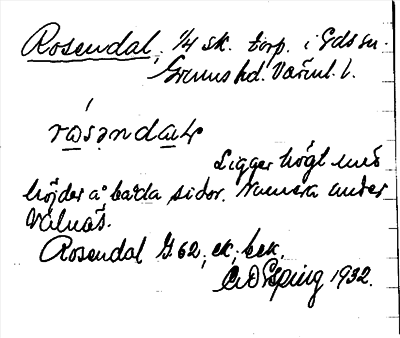 Rosendal, 1/4 sk. torp. i Eds sn.
Grums hd. Värml. l.
rósəndaɫ
Ligger högt med
höjder å båda sidor. Numera under
Välnäs.
Rosendal G 62, ek, bek.
C. O. Esping 1932.